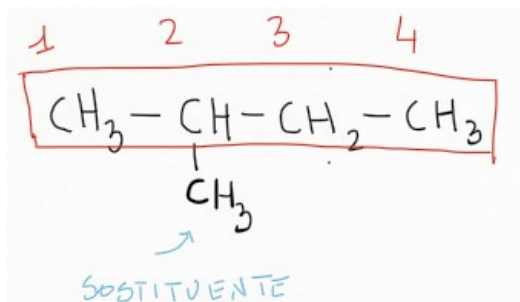 1 2 3 4
CH₃ — CH — CH₂ — CH₃
CH₃
SOSTITUENTE